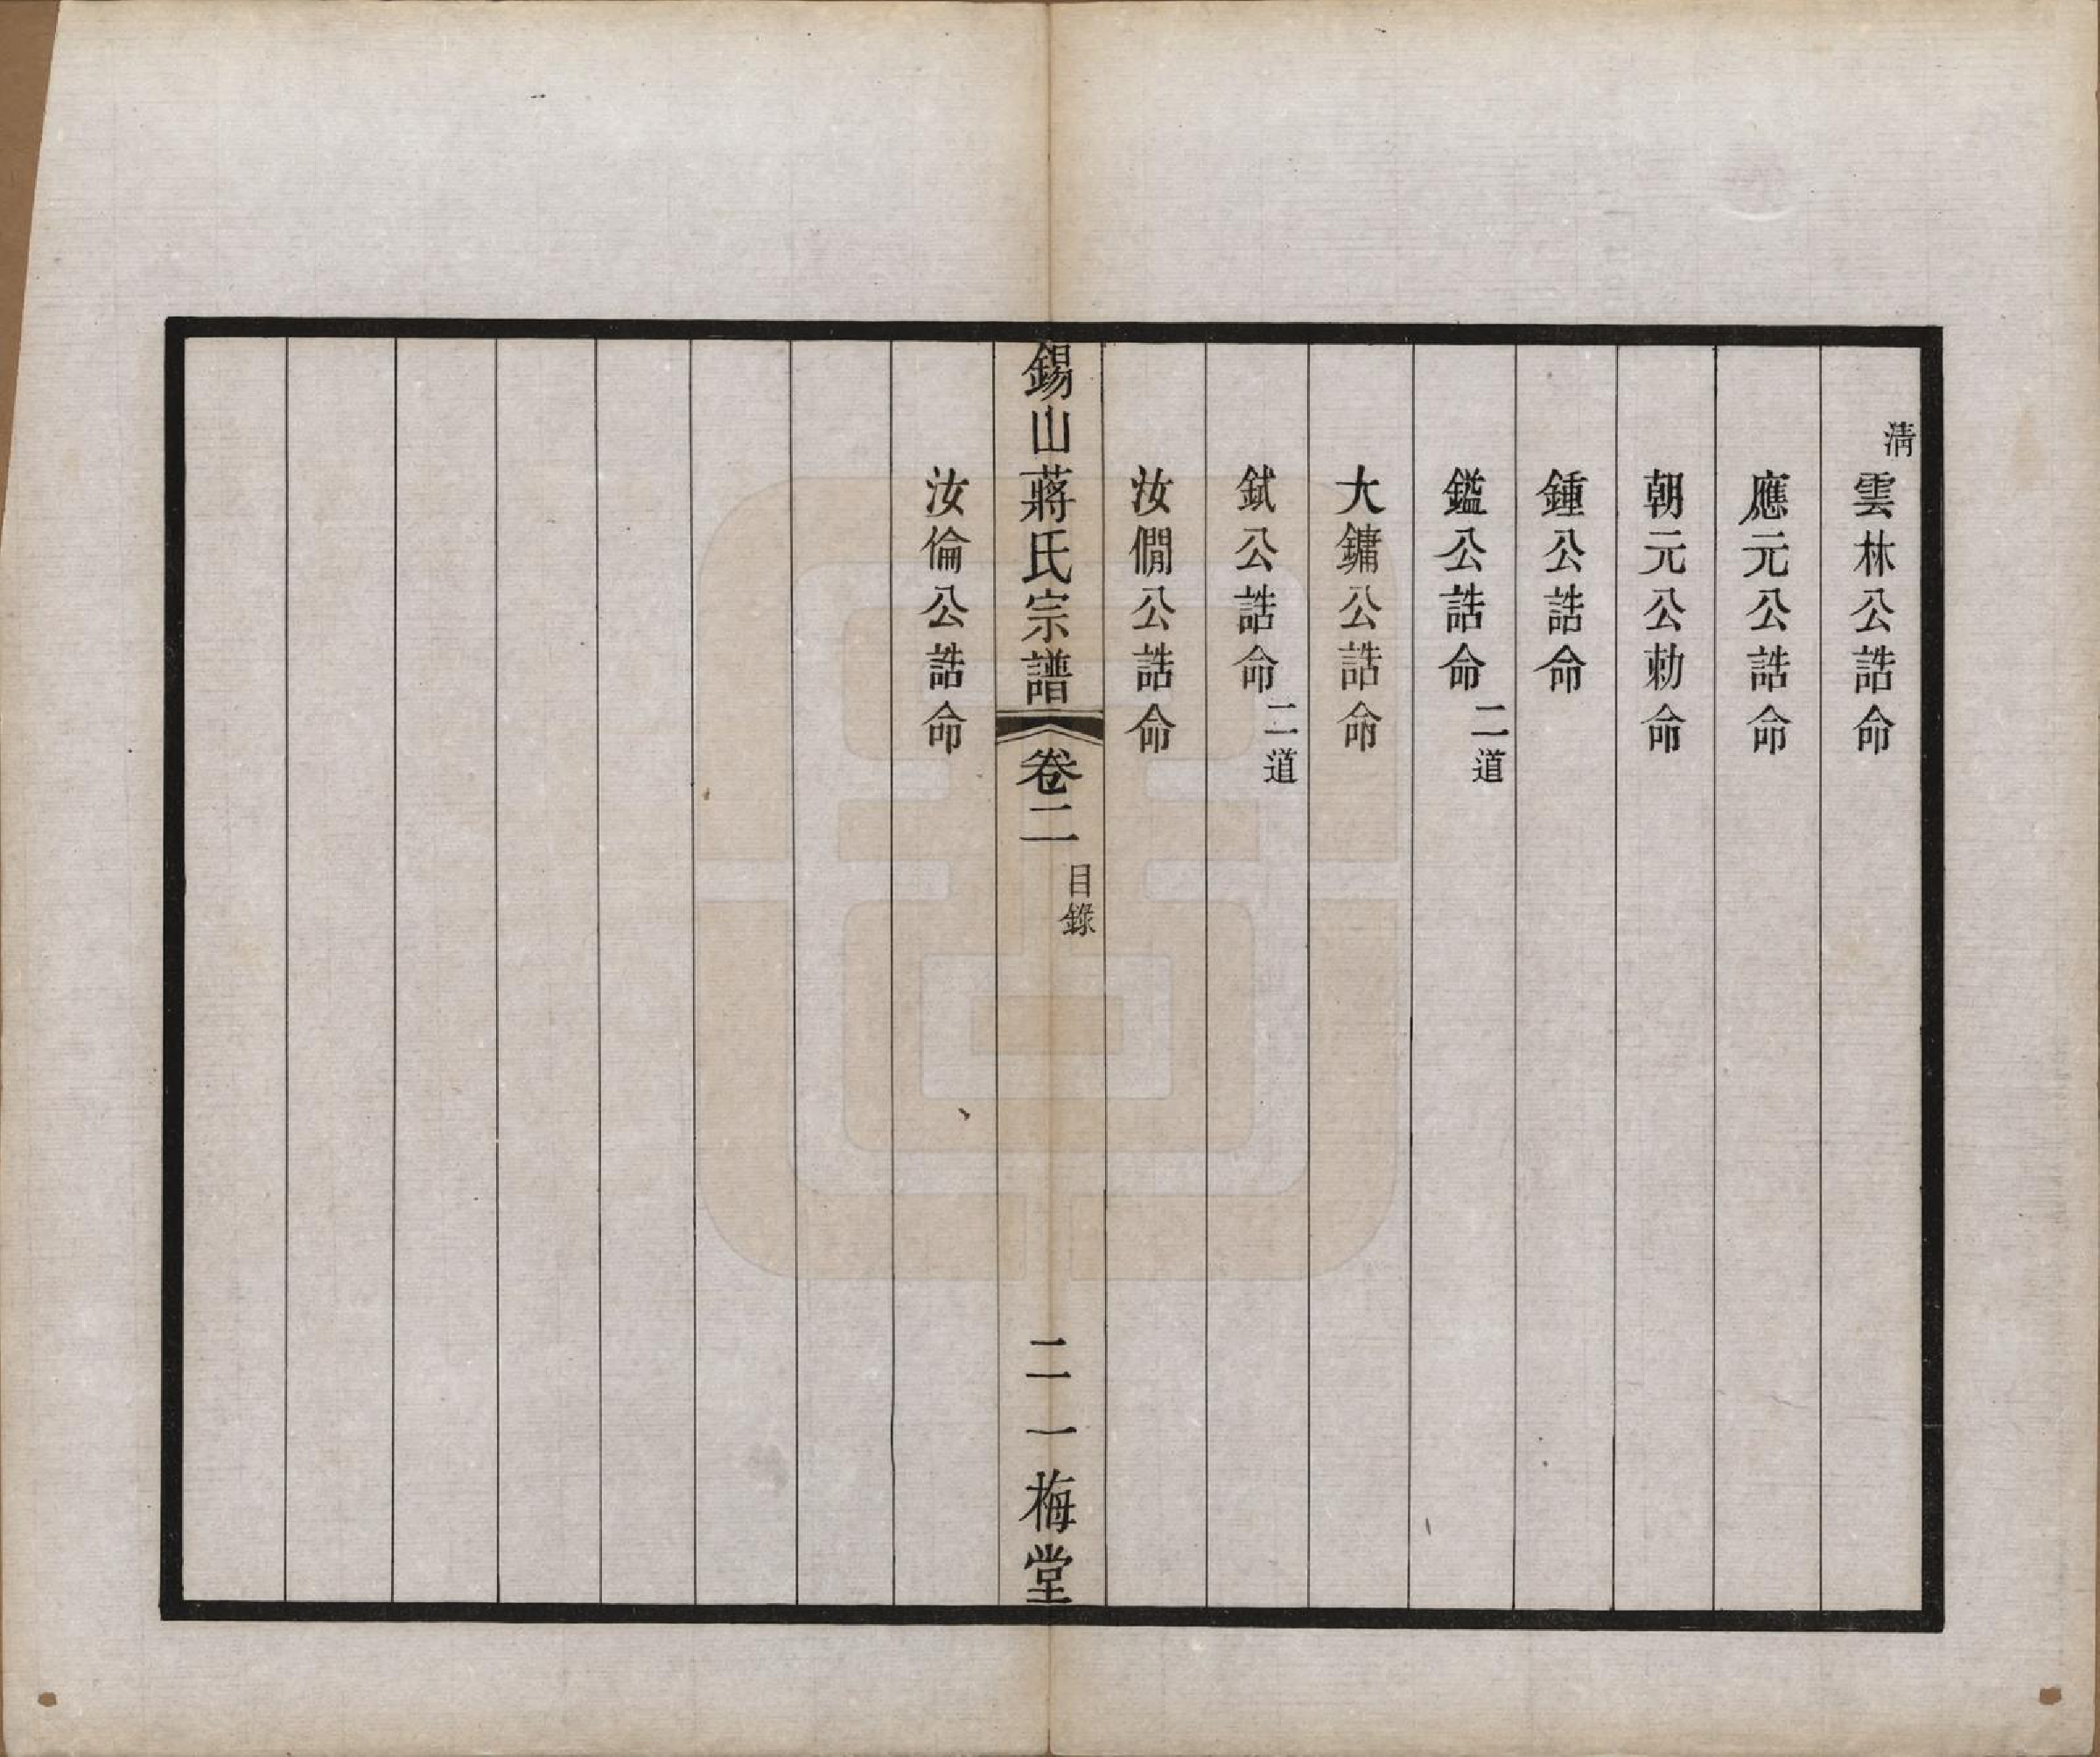 清
雲林公誥命
應元公誥命
朝元公勅命
鍾公誥命
鎰公誥命二道
大鏞公誥命
錻公誥命二道
汝僩公誥命
錫山蔣氏宗譜 卷二 目錄 二 一梅堂
汝倫公誥命